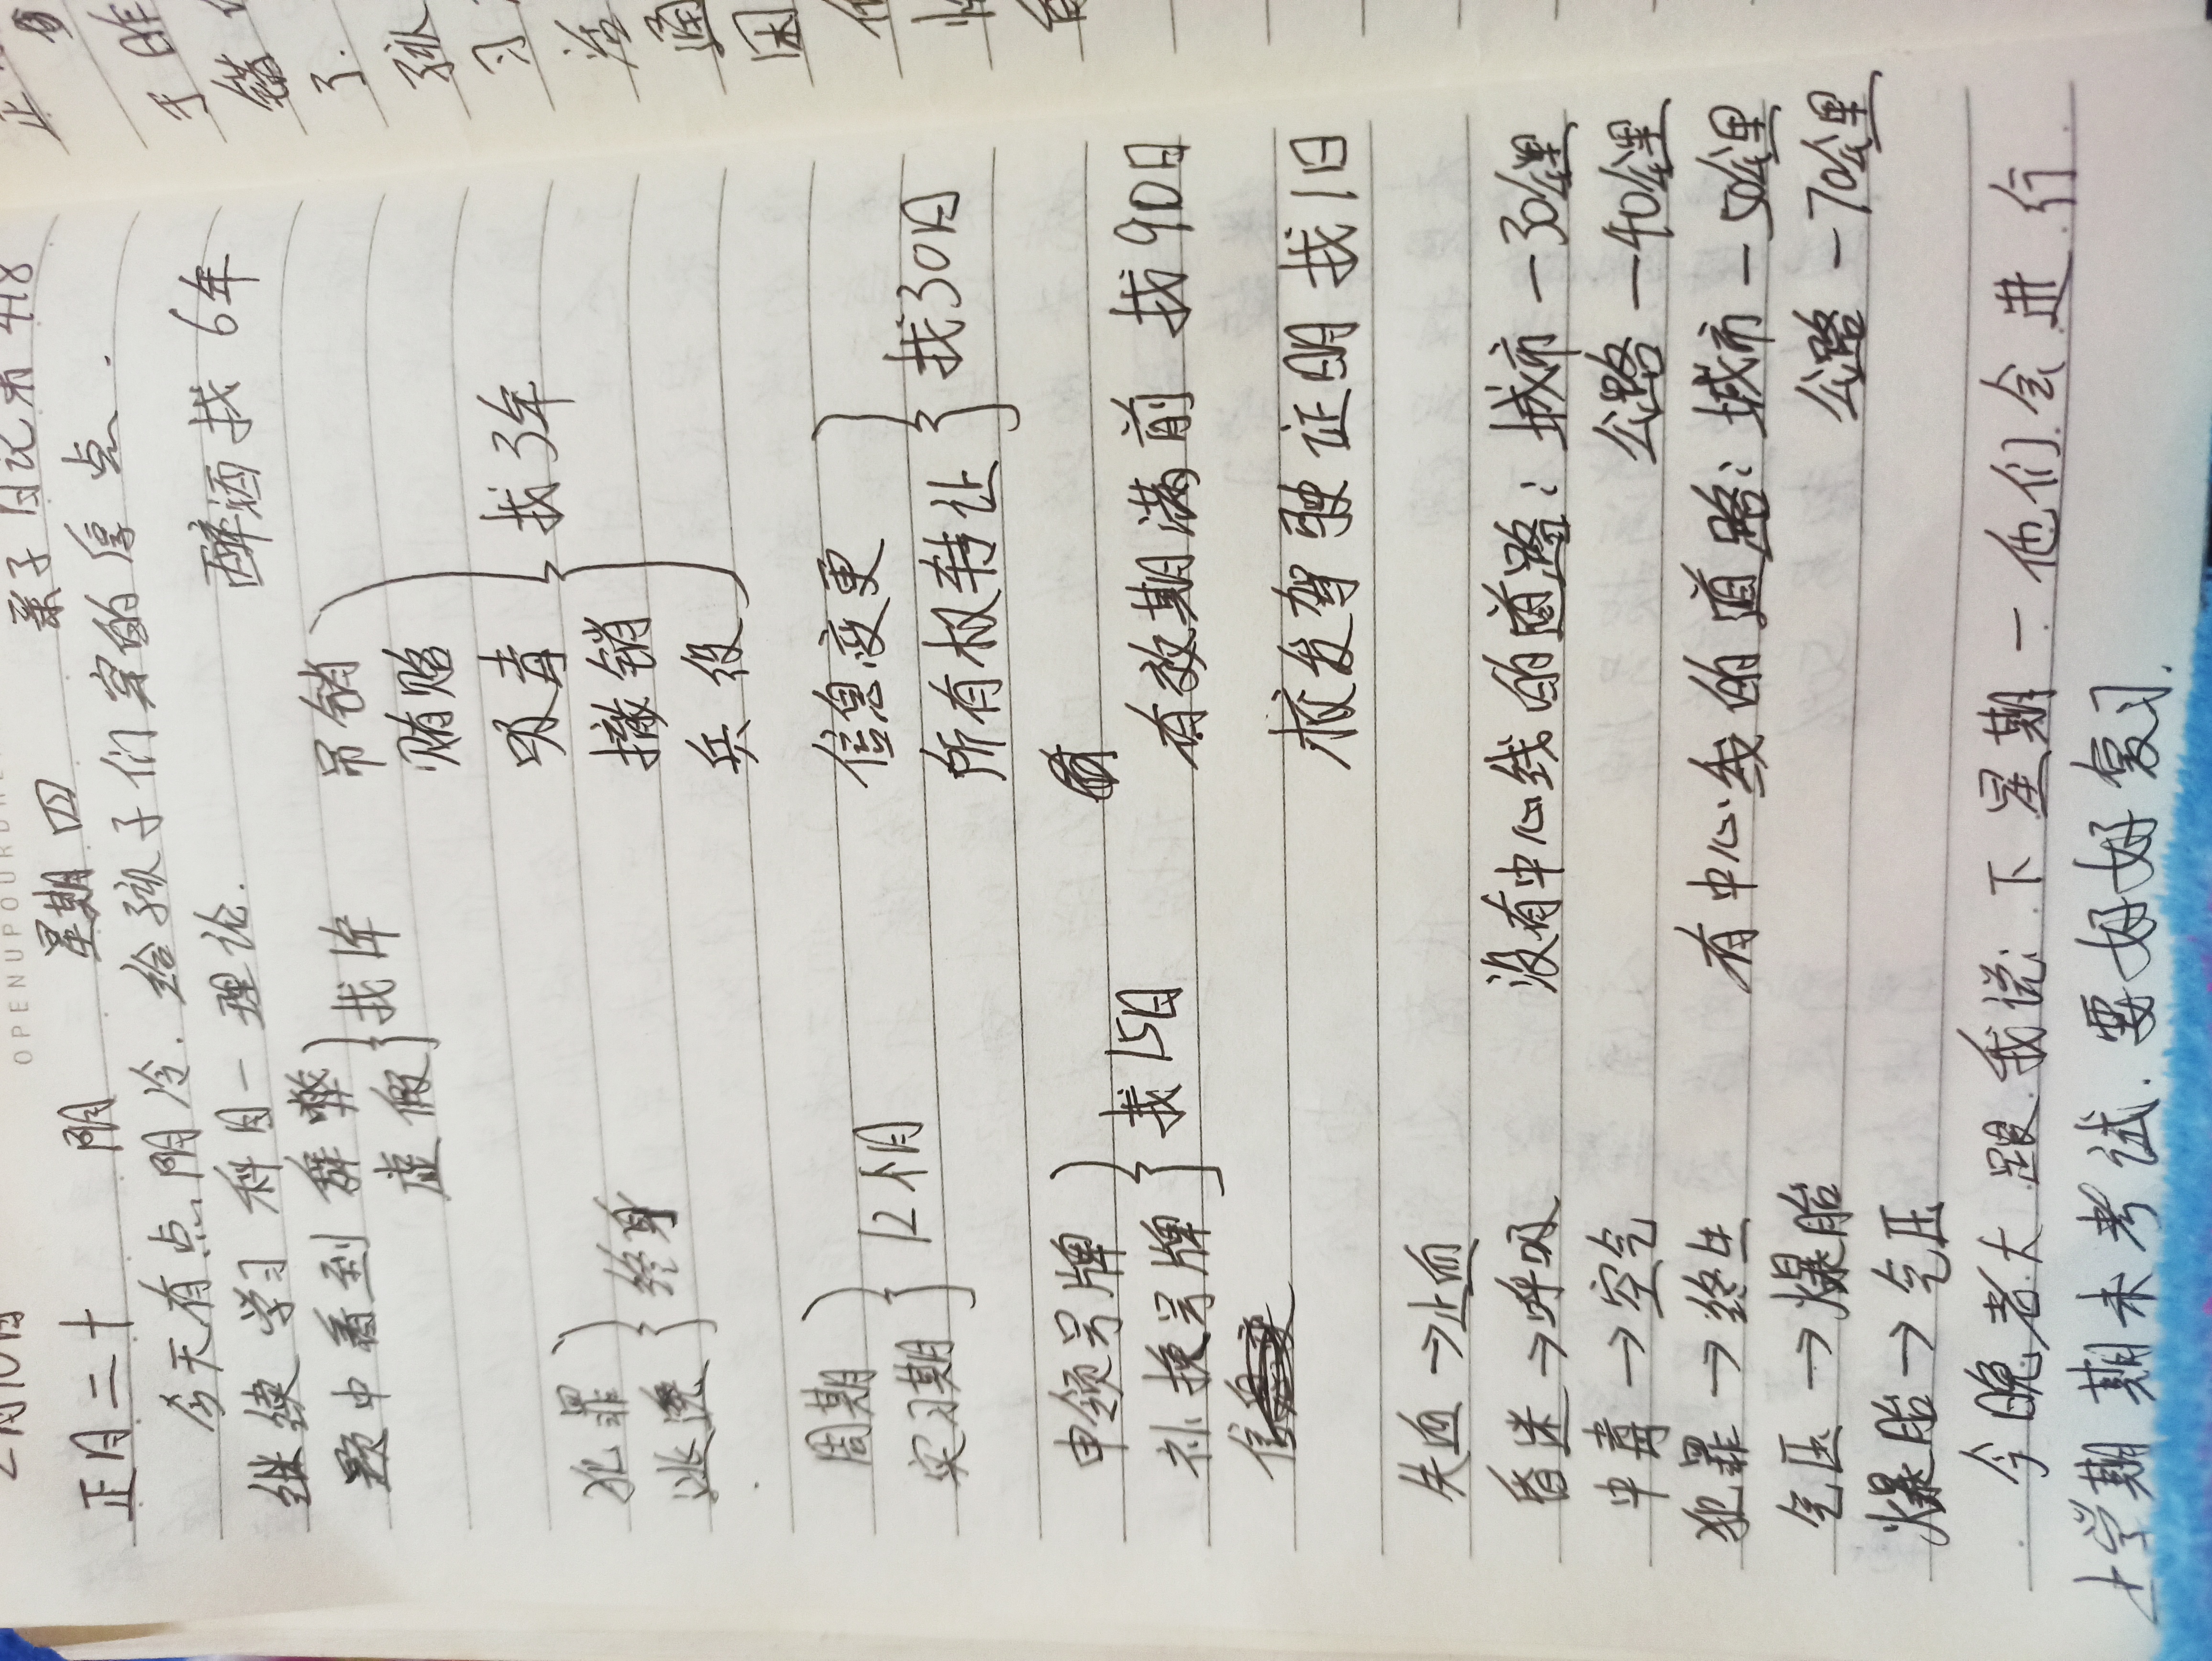 OPENUPOUR
2月10日
正月二十 阴 星期四 亲子日记 418
今天有点阴冷.给孩子们穿的厚点.
继续学习科目一理论.
醉酒找 6年
题中看到 舞弊 虚假 } 找1年
吊销 贿赂 吸毒 撤销 兵役 } 找3年
犯罪 逃逸 } 终身
周期 实习期 } 12个月
信息变更 所有权转让 } 找30日
申领号牌 补换号牌 } 找15日
有效期满前 找90日
核发驾驶证明找1日
失血→止血
昏迷→呼吸
中毒→空气
犯罪→终生
气压→爆胎
爆胎→气压
没有中心线的道路:城市-30公里
公路-40公里
有中心线的道路:城市-50公里
公路-70公里
今晚老大跟我说:下星期一他们会进行
上学期期末考试.要好好复习.